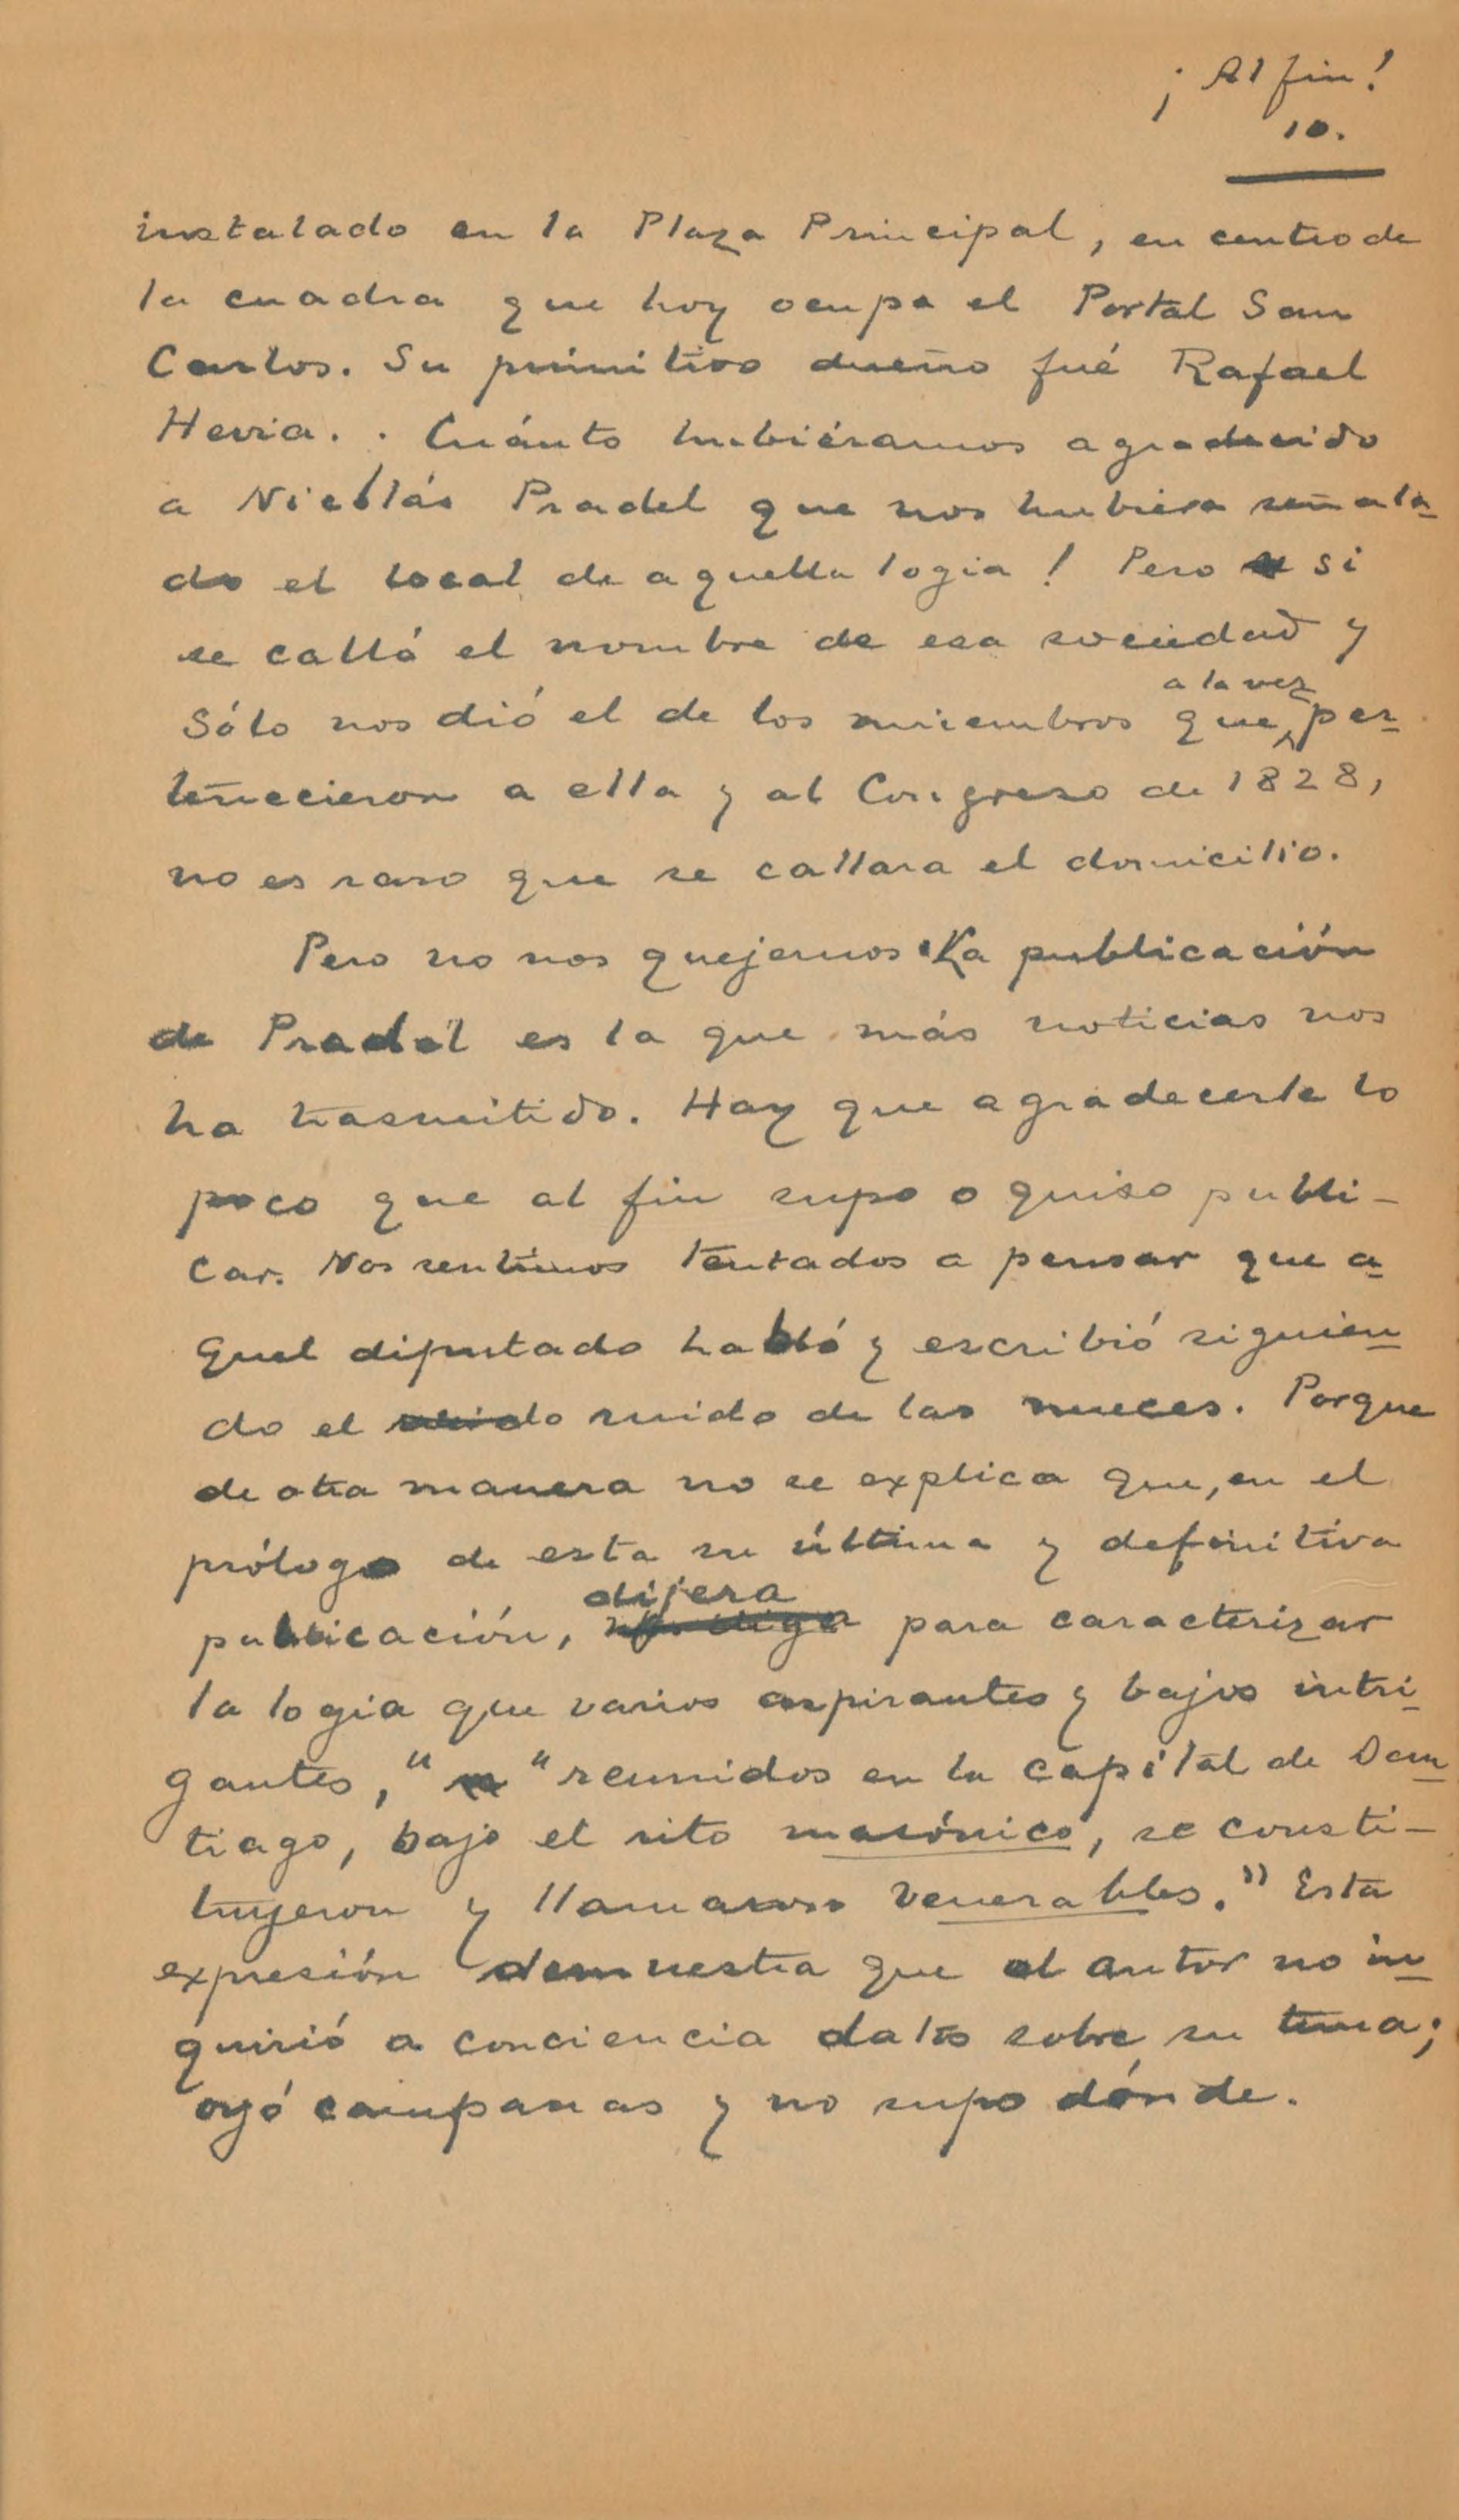 ¡Al fin!
10.
instalado en la Plaza Principal, en centro de
la cuadra que hoy ocupa el Portal San
Carlos. Su primitivo dueño fué Rafael
Hevia. . Cuánto hubiéramos agradecido
a Nicolás Pradel que nos hubiera señala-
do el local de aquella logia! Pero si
se calló el nombre de esa sociedad y
a la vez
Sólo nos dió el de los miembros que per-
tenecieron a ella y al Congreso de 1828,
no es raro que se callara el domicilio.
Pero no nos quejemos. La publicación
de Pradel es la que más noticias nos
ha trasmitido. Hay que agradecerle lo
poco que al fin supo o quiso publi-
car. Nos sentimos tentados a pensar que a-
quel diputado habló y escribió siguien-
do el ruido de las nueces. Porque
de otra manera no se explica que, en el
prólogo de esta su última y definitiva
dijera
publicación, para caracterizar
la logia que varios aspirantes y bajos intri-
gantes," "reunidos en la capital de San-
tiago, bajo el rito masónico, se consti-
tuyeron y llamaron Venerables." Esta
expresión demuestra que el autor no in-
quirió a conciencia datos sobre su tema;
oyó campanas y no supo dónde.